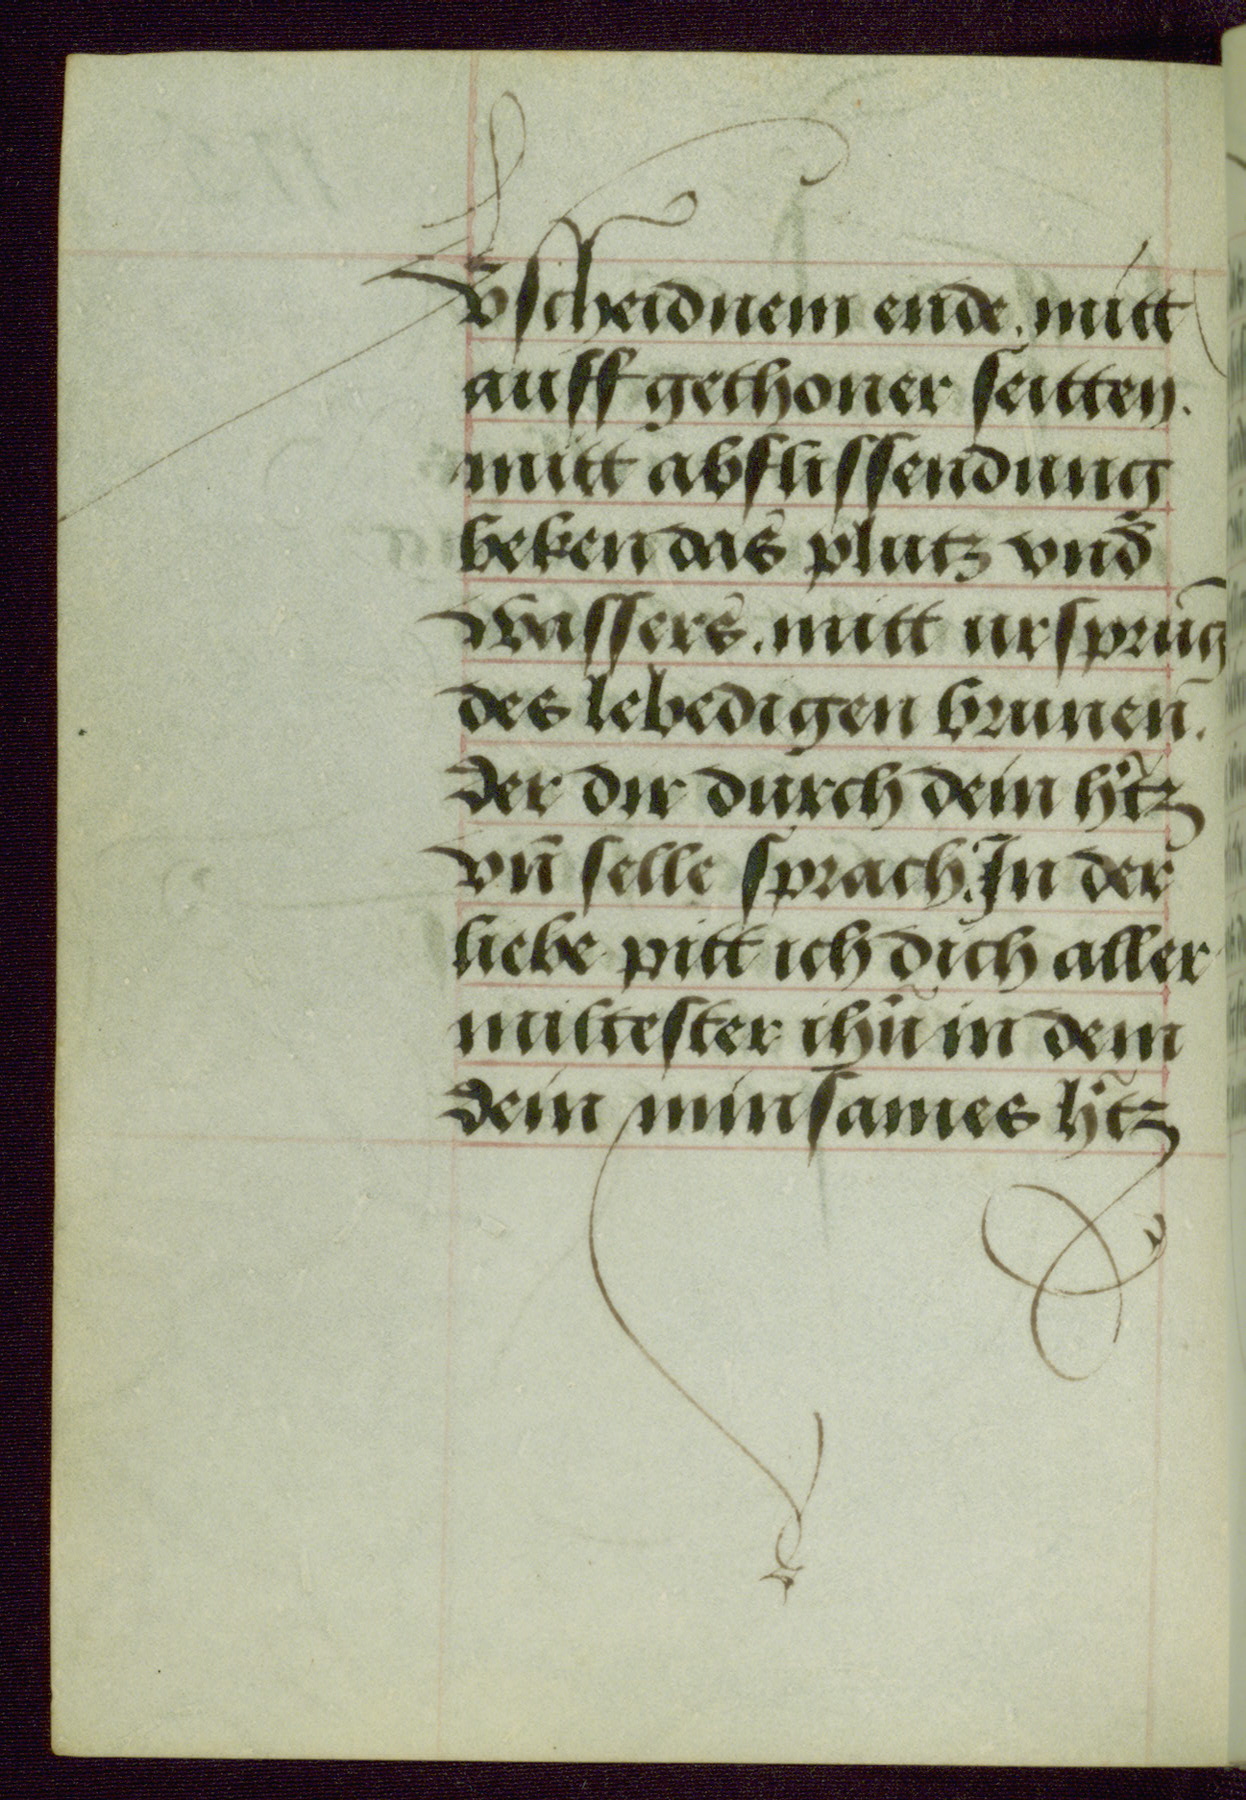 v̄scheidnem ende. mitt
auff gethoner seitten.
mitt abflissendung
beken das plutz vnd̄
wassers. mitt ursprūg
des lebedigen brunen̄.
Der dir durch dein hr̄tz
vn̄ selle sprach. In der
liebe pitt ich dich aller
miltester ihū in dem
dein minsames hr̄tz